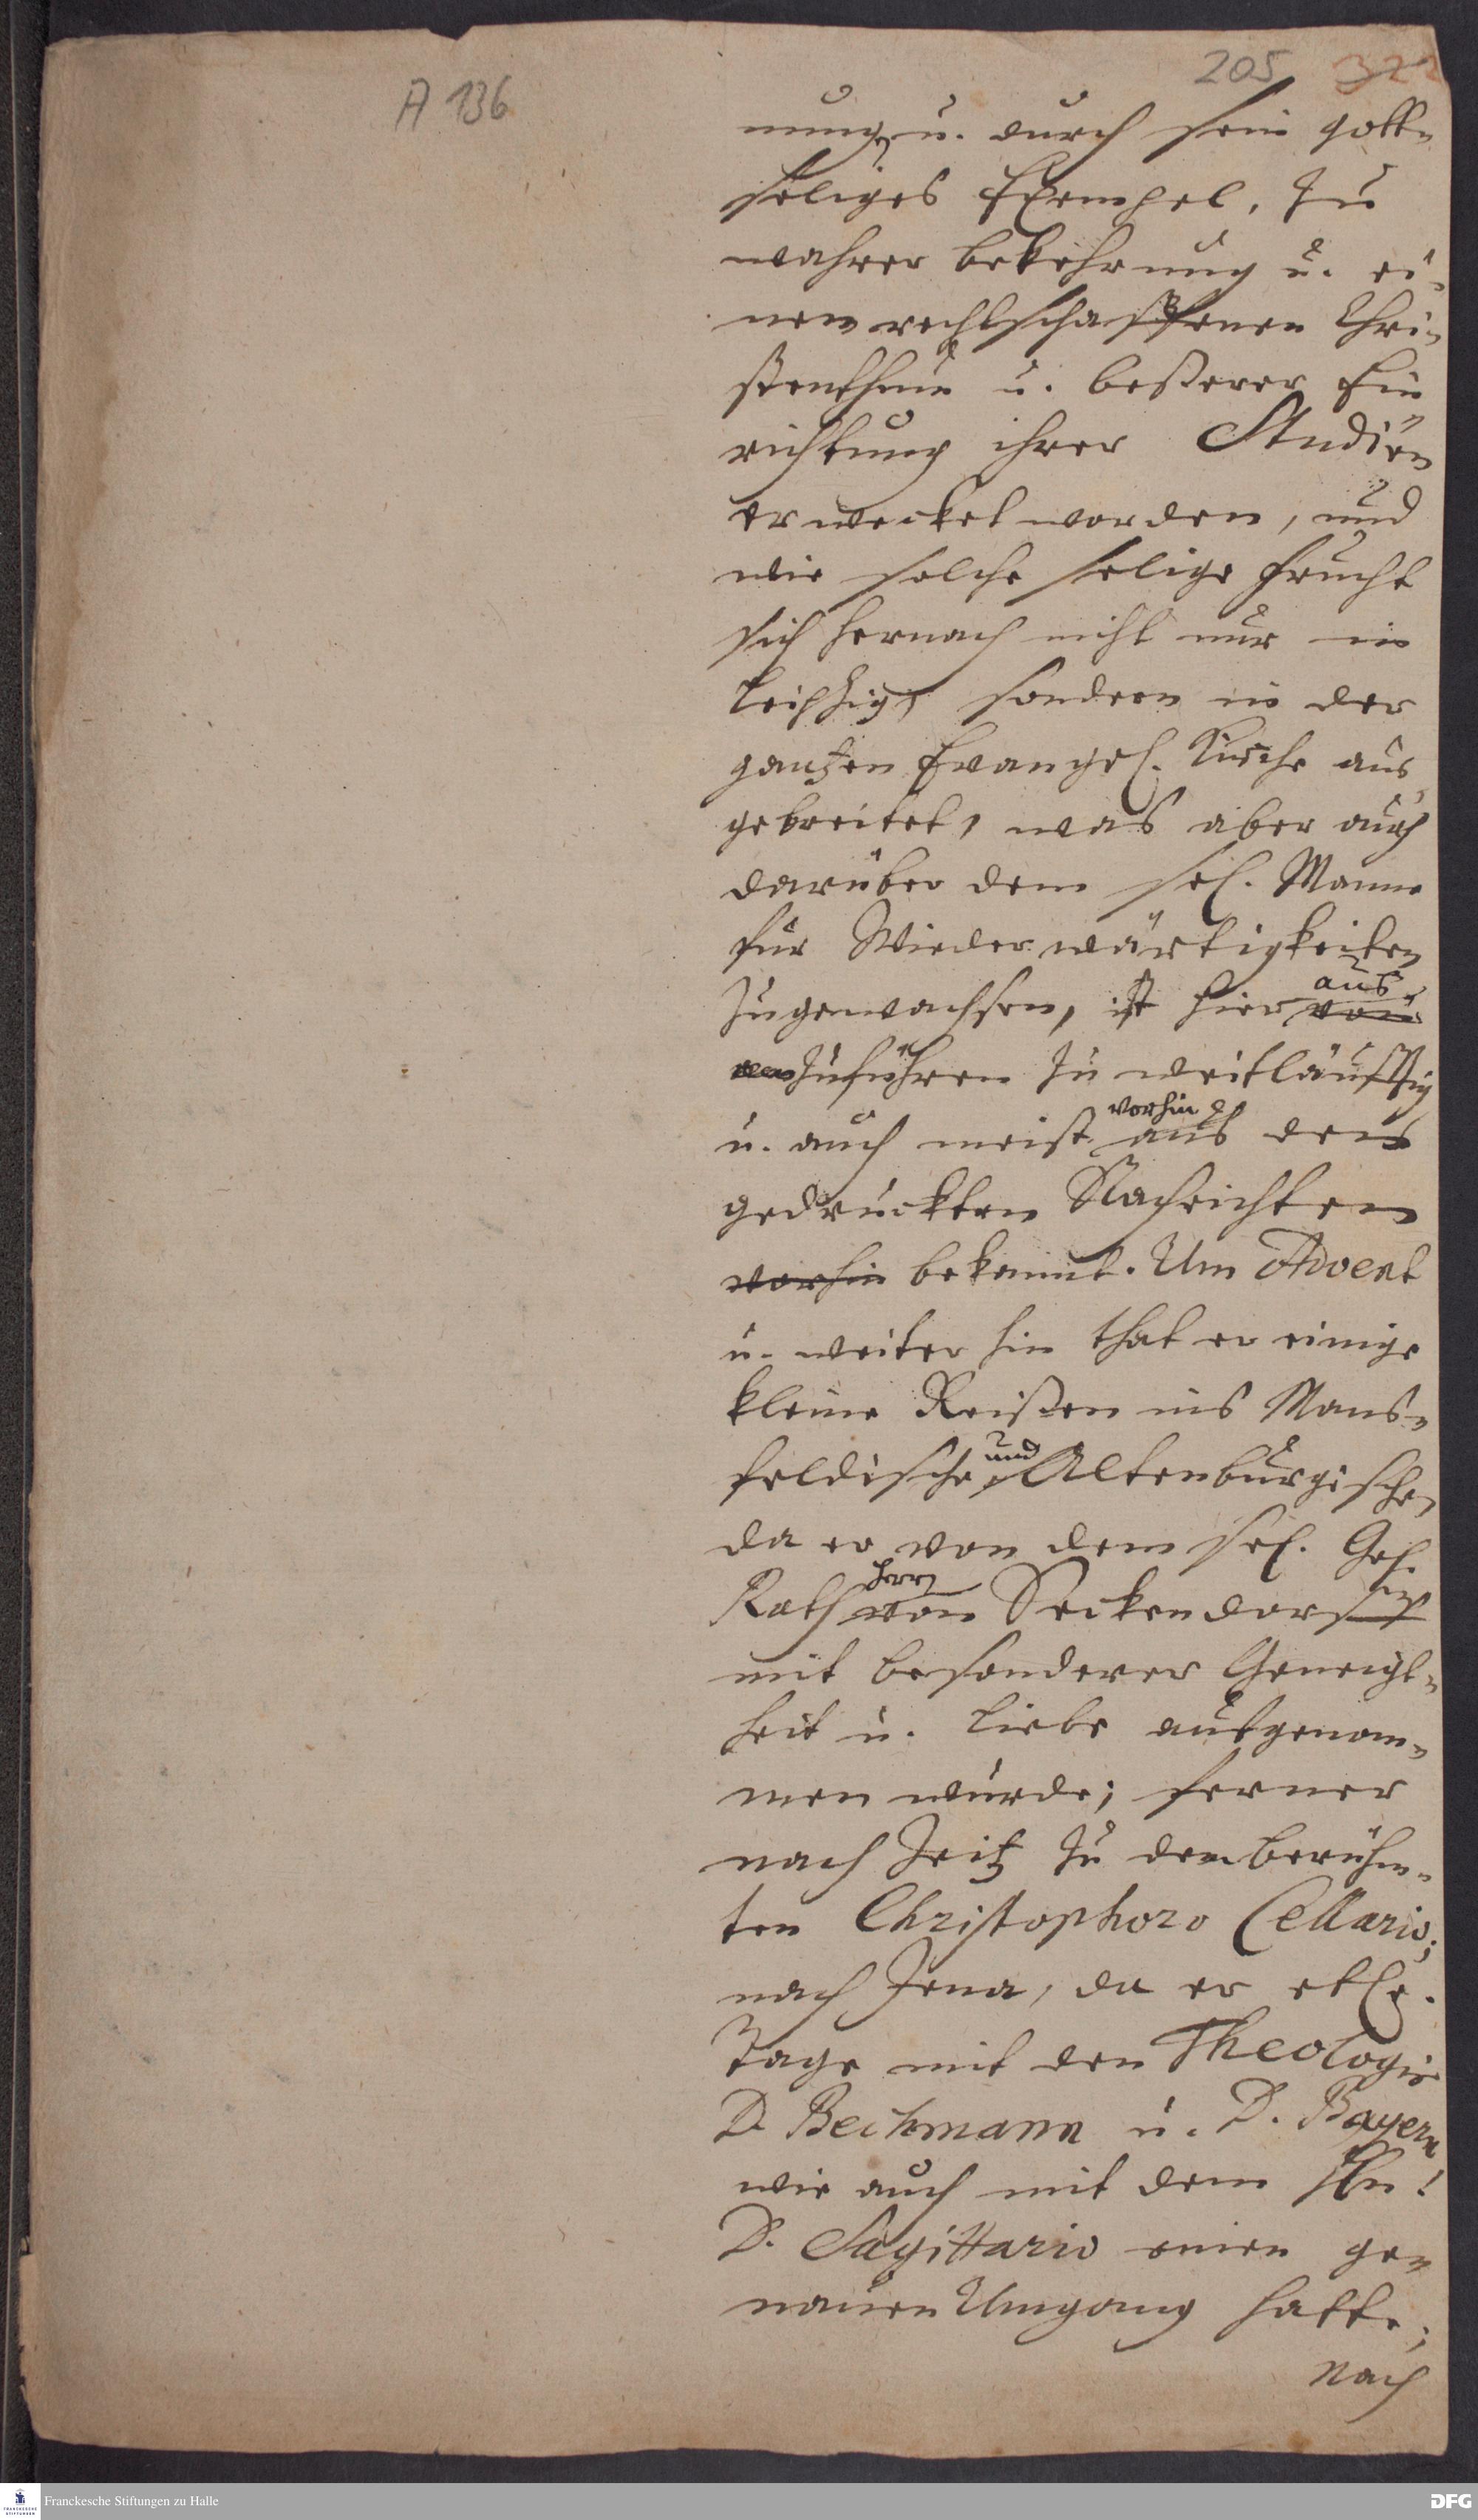 205 322
A 136
nung, u. durch sein gott-
seliges Exempel, zu
wahrer bekehrung u. ei-
nem rechtschaffenen Chri-
stenthum u. beßerer Ein
richtung ihrer Studien
erwecket worden, und
wie solche selige Frucht
sich hernach nicht nur in
Leipzig, sondern in der
gantzen Evangel. Kirche aus
gebreitet, was aber auch
darüber dem sel. Manne
für Wiederwärtigkeiten
aus
zugewachsen, ist hier
zuführen zu weitläufftig
vorhin
u. auch meist aus den
gedruckten Nachrichten
vorhin bekannt. Um Advent
u. weiter hin that er einige
kleine Reißen ins Mans-
und
feldische, Altenburgische,
da er von dem sel. Geh.
Herrn
Rath von Seckendorff
mit besonderer Geneigt-
heit u. Liebe aufgenom-
men wurde; ferner
nach Zeitz zu dem berühm-
ten Christophoro Cellario;
nach Jena, da er etle.
Tage mit den Theologis
D. Bechmann u. D. Bayern
wie auch mit dem Hn!
D. Sagittario einen ge-
nauen Umgang hatte;
nach
Franckesche Stiftungen zu Halle
DFG